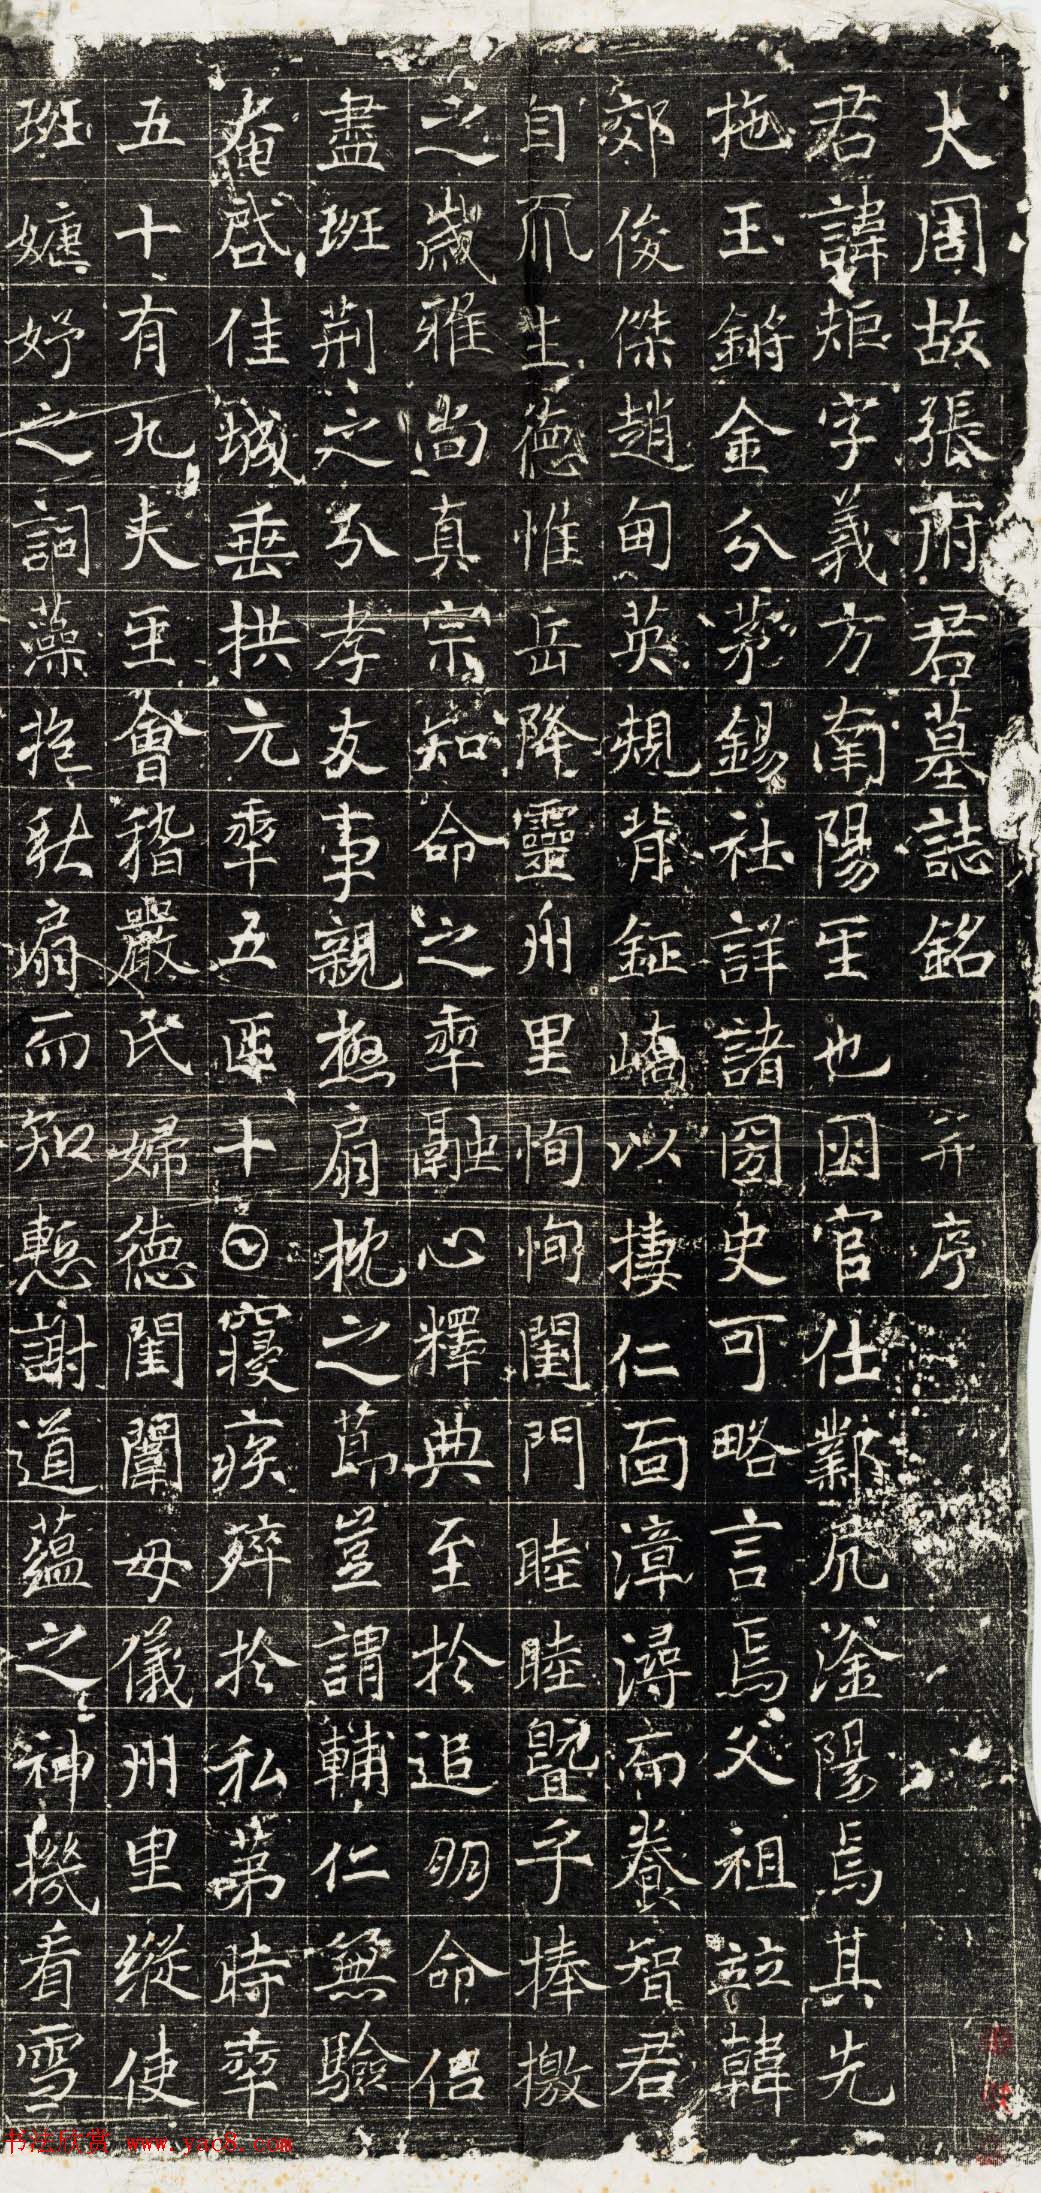 大周故張府君墓誌銘并序
君諱矩字義方南陽𡈼也因官仕鄴宛滏陽焉其先
拖玉鏘金分茅錫社詳諸圖史可略言焉父祖竝韓
郊俊傑趙甸英規背鉦嶠以捿仁面漳潯而養智君
自而生德惟岳降靈州里恂恂閨門睦睦暨乎捧檄
之歲雅尚真宗知命之秊融心釋典至於追朋命侣
盡班荊之分孝友事親極扇枕之莭豈謂輔仁無驗
奄啓佳城垂拱元秊五𠥱十𡆠寢疾殍於私苐時秊
五十有九夫𡈼會稽嚴氏婦德閨闈母儀州里縱使
班婕妤之詞藻抱秋扇而知慙謝道藴之神機看雪
书法欣赏 www.yac8.com